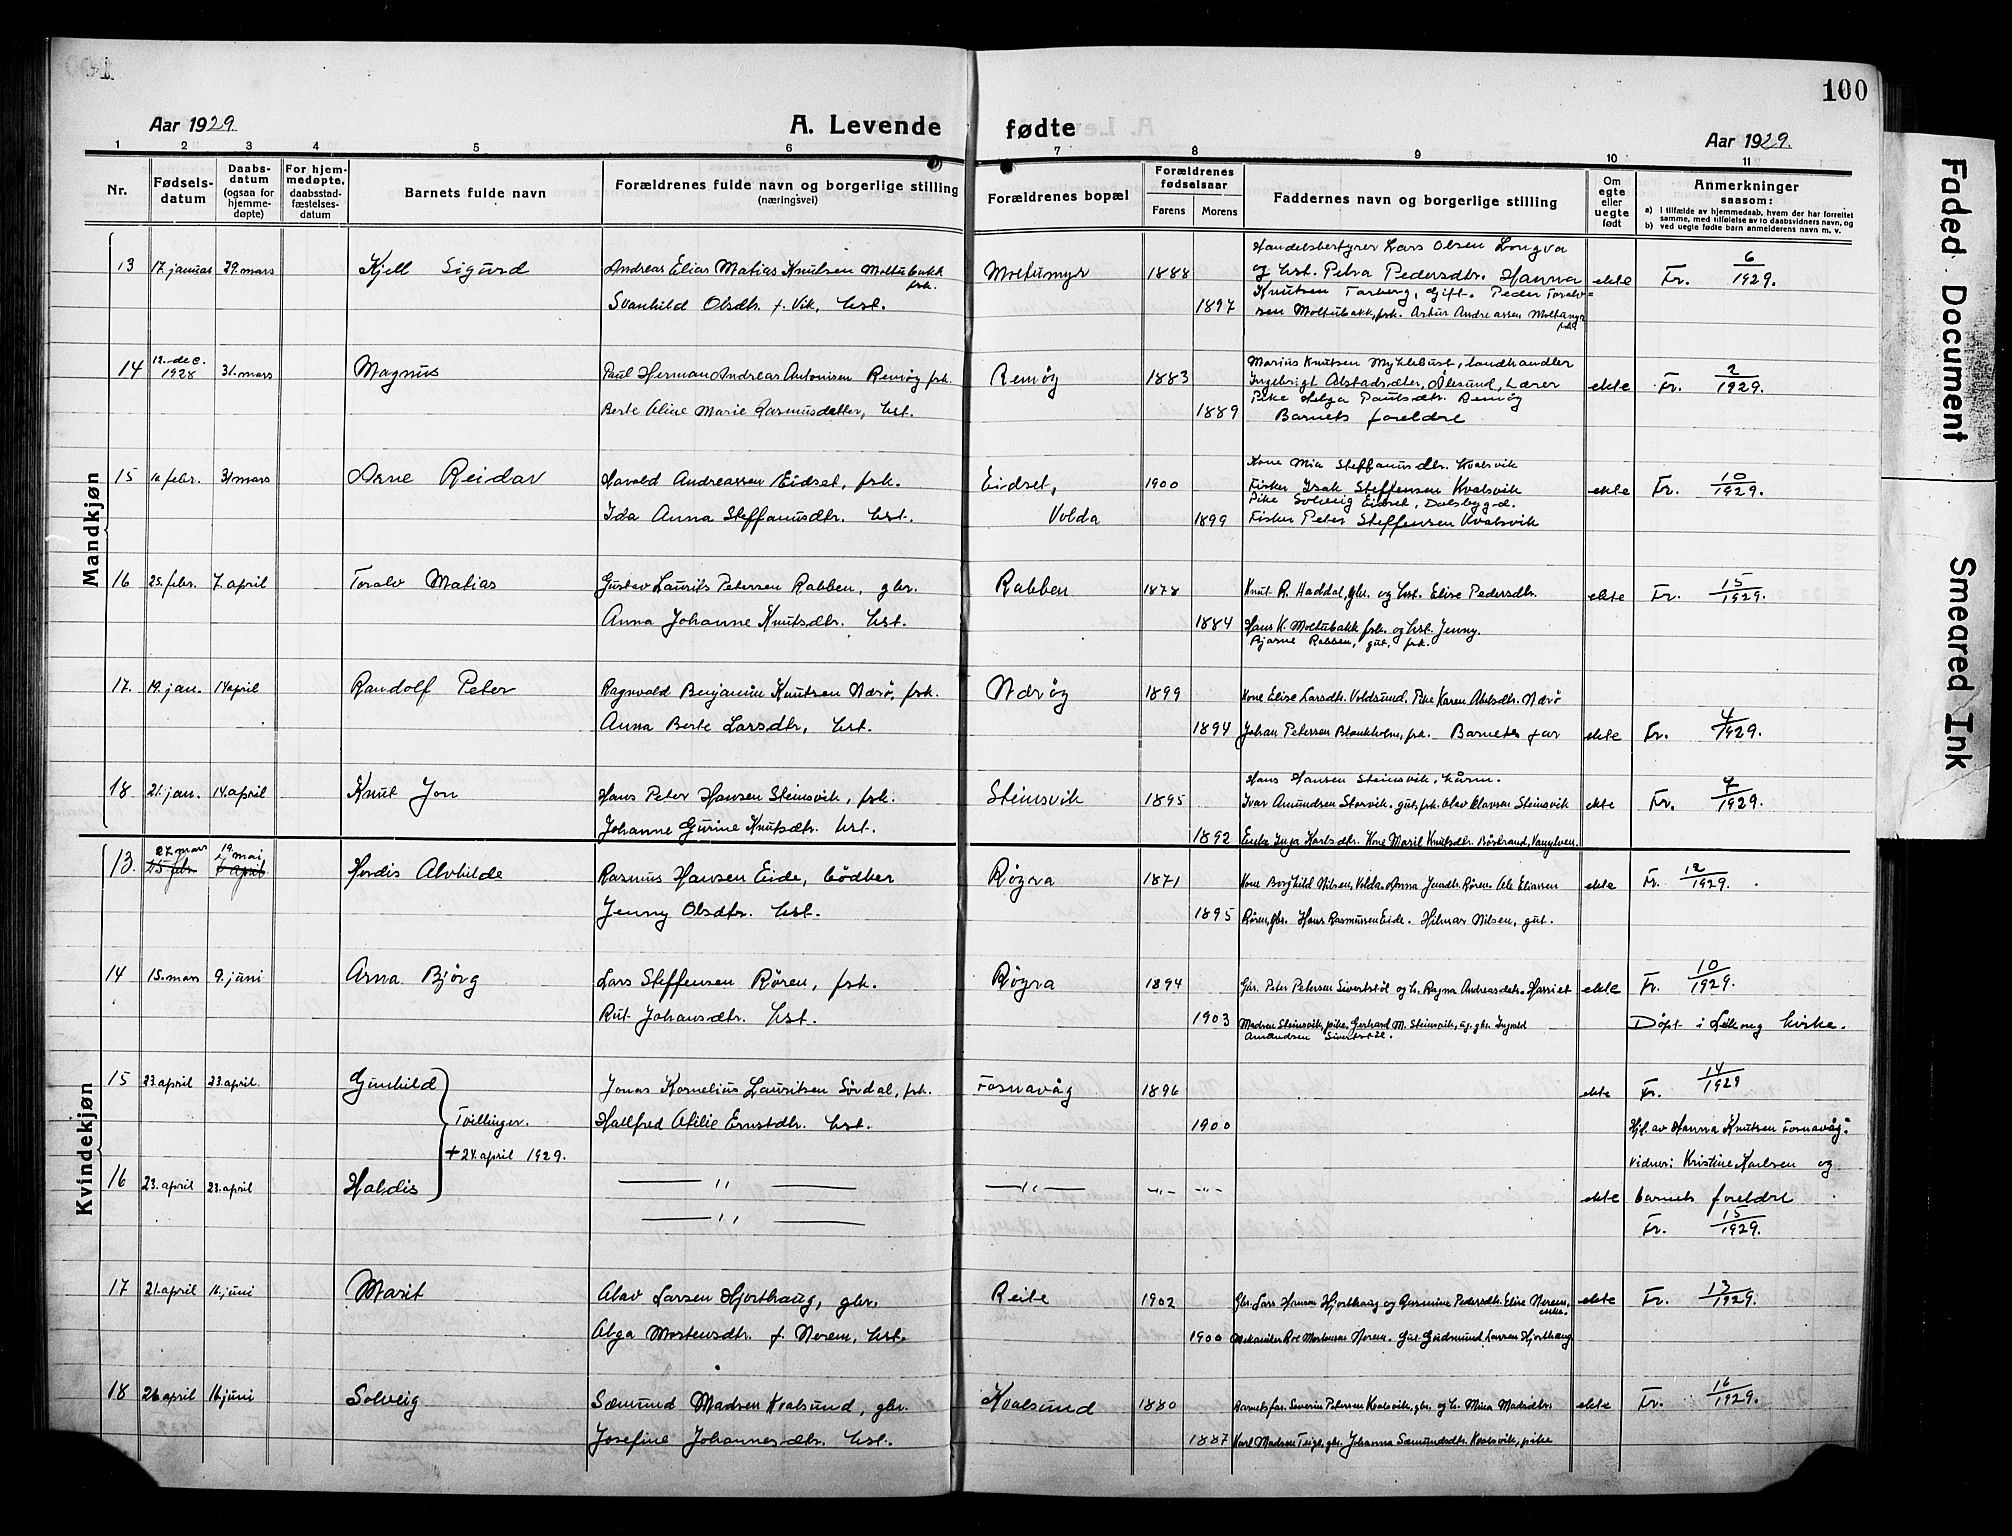 100
Aar 1929.
A. Levende fødte
Aar 1929.
1 2 3 4 5 6 7 8 9 10 11
Nr.
Fødselsdatum
Daabsdatum (ogsaa for hjemmedøpte)
For hjemmedøpte, daabsstadfæstelsesdatum
Barnets fulde navn
Forældrenes fulde navn og borgerlige stilling (næringsvei)
Forældrenes bopæl
Forældrenes fødselsaar
Farens Morens
Faddernes navn og borgerlige stilling
Om egte eller uegte født
Anmerkninger saasom:
a) I tilfælde av hjemmedaab, hvem der har forrettet samme, med tilføielse av to daabsvidners navn, og
b) ved uegte fødte barn anmelderens navn m. v.
Mandkjøn
13 17 januar 29. mars Kjell Sigurd Andreas Elias Matias Knutsen Moltubakk fsk. Moltumyr 1888 Handelsbestyrer Lars Olsen Longva
og hst. Petra Pedersdtr. Hanna ekte Fr. 6/1929.
Svanhild Olsdtr. f. Vik, hst. 1897 Knutsen Tarberg, gift. Peder Toralv=
sen Moltubakk, fsk. Artur Andreassen Moltumyr fsk.
14 12. dec. 1928 31. mars Magnus Paul Herman Andreas Antonisen Remøy fsk. Remøy 1883 Marius Knutsen Myklebust, landhandler
Ingebrigt Alstadsæter, Ålesund, Lærer ekte Fr. 2/1929.
Berte Oline Marie Rasmusdatter, hst. 1889 Pike Helga Paulsdtr. Remøy
Barnets foreldre
15 10 febr. 31 mars Arne Reidar Harald Andreassen Eidset, fsk. Eidset, 1900 Kone Mia Steffanusdtr. Kvalsvik
Fisker Isak Steffensen Kvalsvik ekte Fr. 10/1929.
Pike Solveig Eidset, Dalsbygd.
Ida Anna Steffanusdtr. hst. Volda 1899 Fisker Peter Steffensen Kvalsvik
16 25. febr. 7. april Toralv Matias Gustav Laurits Petersen Rabben, gbr. Rabben 1878 Knut R. Haddal, gbr. og hst. Elise Pedersdtr. ekte Fr. 15/1929.
Anna Johanne Knutsdtr. hst. 1884 Hans K. Moltubakk fsk. og hst. Jenny.
Bjarne Rabben, gut, fsk.
17. 19. jan. 14 april Randolf Peter Ragnvald Benjamin Knutsen Nærø, fsk. Nærøy 1899 Kone Elise Larsdtr. Voldsund. Pike Karen Abelsdtr. Nærø
Anna Berte Larsdtr, hst. 1894 Johan Petersen Blankholm, fsk. Barnets far ekte Fr. 4/1929.
18 21. jan. 14. april Knut Jon Hans Peter Hansen Steinsvik, fsk. Steinsvik 1895 Hans Hansen Steinsvik, kårm.
Ivar Amundsen Storvik. gut, fsk. Olav Olavsen Steinsvik ekte Fr. 9/1929.
Johanne Gurine Knutsdtr. hst. 1892 Enke Inga Karlsdtr. Kone Marit Knutsdtr. Børstrand, Vanylven.
Kvindekjøn
13. 27. mars 19 mai Hordis Alvhilde Rasmus Hansen Eide, bødker Røyra 1871 Kone Borghild Nilsen, Volda. Anna Jensdtr. Røren. Ole Eliassen ekte Fr. 12/1929.
15 febr. 7 april
Jenny Olsdtr. hst. 1895 Røren, gbr. Hans Rasmussen Eide. Hilmar Nilsen, gut.
14 15. mars 9. juni Arna Bjørg Lars Steffensen Røren, fsk. Røyra 1894 Gbr. Peter Petersen Sivertstøl og h. Ragna Andreasdtr. Harriet ekte Fr. 10/1929.
Rut Johansdtr. hst. 1903 Madsen Steinsvik, pike. Gerhard M. Steinsvik, ug. gbr. Ingvald Døpt i Leikong kirke.
Amundsen Sivertstøl.
15 23 april 23. april. Gunhild Jonas Kornelius Lauritsen Sørdal, fsk. Fosnavåg 1896 ekte Fr. 14/1929
Tvillinger. Hallfred Otilie Ernstdtr. hst. 1900 Hj. av Hanna Knutsen Fosnavåg.
+ 24 april 1929. vidner: Kristine Karlsen og
16 23. april 23. april Haldis — " — — " — - " - - " - ekte barnets foreldre
— " — Fr. 15/1929.
17 21. april 16. juni Marit Olav Larsen Hjorthaug, gbr. Reite 1902 Gbr. Lars Hansen Hjorthaug og Rasmine Pedersdtr. Elise Nerem, enke. ekte Fr. 13/1929.
Olga Mortensdtr. f. Nerem, hst. 1900 Mekaniker Roe Mortensen Nerem. Gut Gudmund Larsen Hjorthaug
18 26 april 16 juni Solveig Sæmund Madsen Kvalsund, gbr. Kvalsund 1880 Barnets far. Severin Petersen Kvalsvik, gbr. og h. Mina Madsdtr. ekte Fr. 16/1929.
Josefine Johannesdtr. hst. 1887 Karl Madsen Teige, gbr. Johanna Sæmundsdtr. Kvalsvik, pike
Faded Document
Smeared Ink